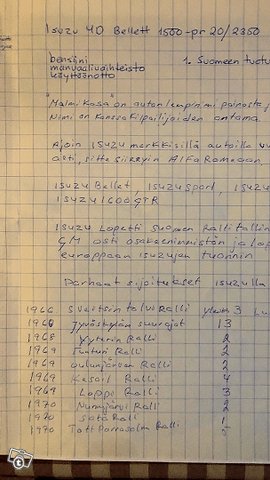 Isuzu 4D Bellett 1500-pr 20/2350
bensiini 1. Suomeen tuotu
manuaalivaihteisto
käyttöönotto
"Malmikasa" on auton lempinimi painosta
Nimi on kanssakilpailijoiden antama.
Ajoin ISUZU merkkisillä autoilla
asti, sitte siirryin Alfa Romeoon,
ISUZU Bellet, ISUZU Sport, ISUZU
ISUZU 1600 GTR
ISUZU Lopetti Suomen Ralli Tallin
GM osti osakeenimmistön ja lop
eurooppaan isuzujen tuonnin
Parhaat sijoitukset isuzulla
1966 Sveitsin talvi Ralli yleisk 3
1966 Jyväskylän suurajot 13
1968 Yyterin Ralli 2
1969 Tunturi Ralli 2
1969 Oulunjärven Ralli 2
1969 Kesoil Ralli 4
1969 Loppi Ralli 3
1970 Nurmijärvi Ralli 2
1970 Sata Ralli 1
1970 Ralli